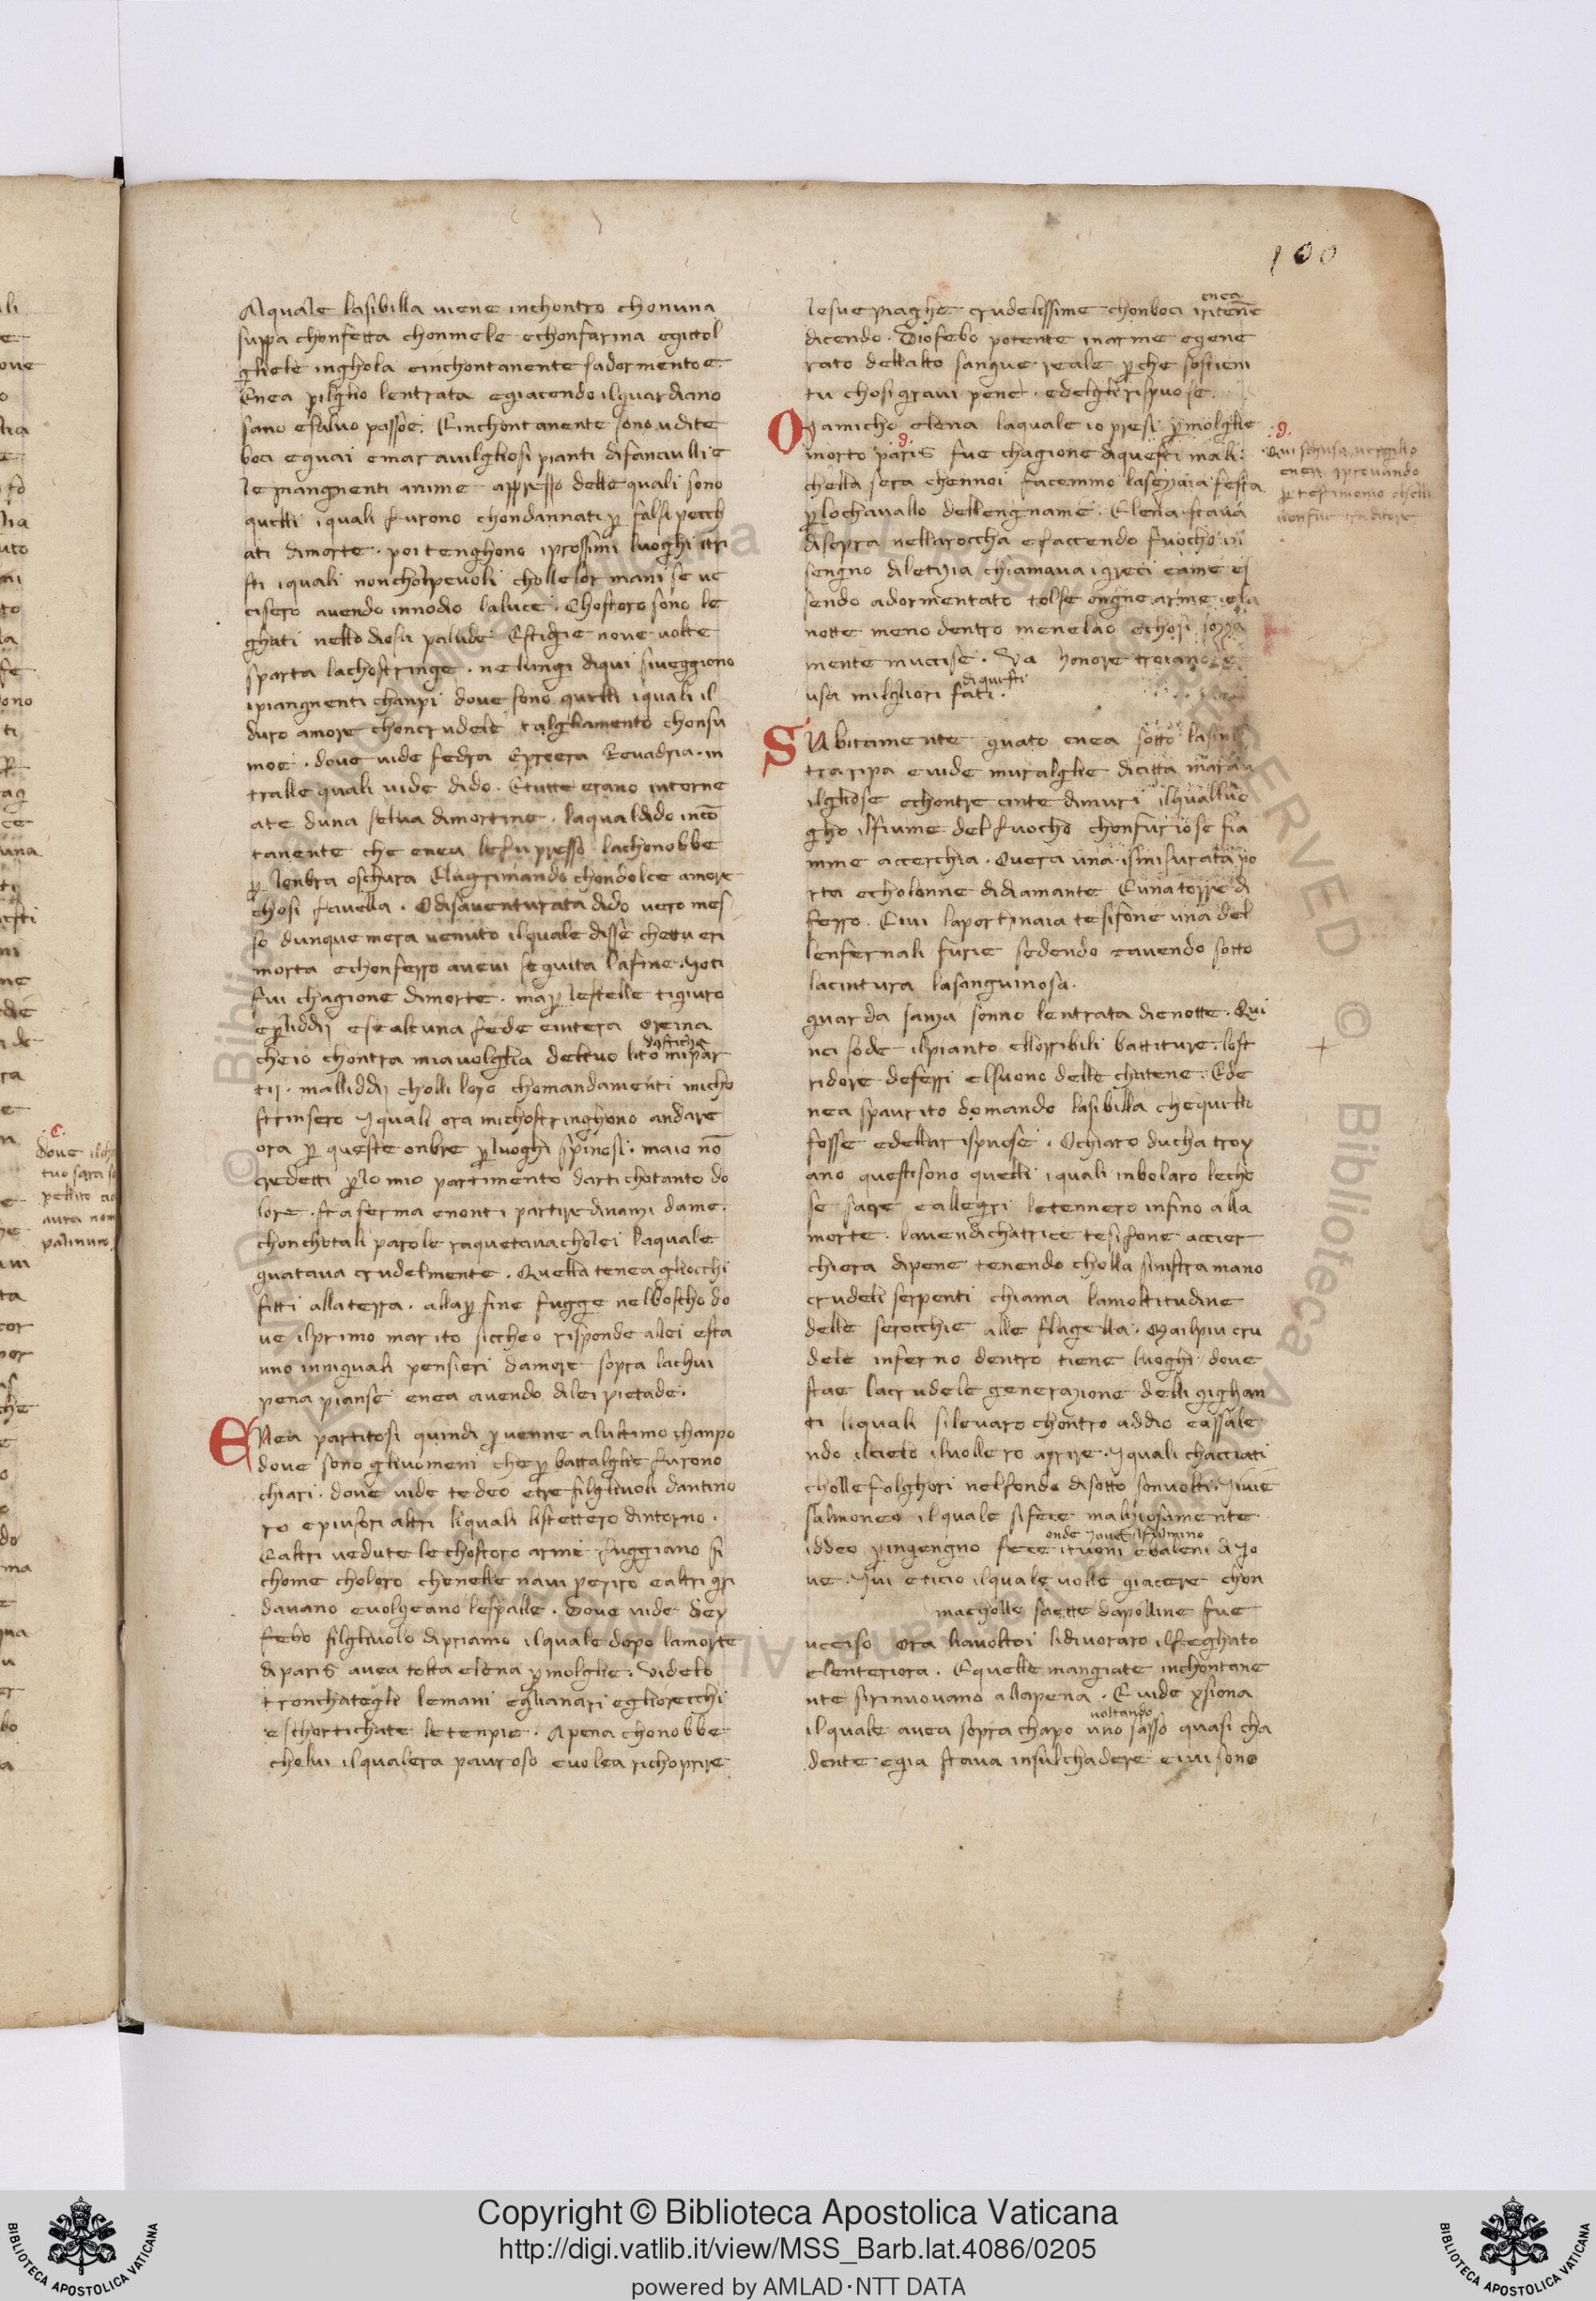 100
Alquale lasibilla viene inchontro chonuna
suppa chonfetta chonmele echonfarina egittol
gliele inghola einchontanente sadormentoe
Enea pilglio lentrata egiacendo ilguardiano
sano esalvo passoe. Einchontanente sono udite
boci equai emaravilgliosi pianti difanciulli e
le piangnenti anime appresso delle quali sono
quelli iquali furono chondannati per falsi pecch
ati dimorte. poi tenghono iprossimi luoghi itri
sti iquali noncholpevoli chollelor mani se uc
cisero avendo innodio laluce. Chostoro sono le
ghati nello diosa palude Estigie nove volte
sparta lachostringe. ne lungi diqui siveggiono
ipiangnenti chanpi dove sono quelli iquali il
duro amore choncrudele talgliamento chonsu
moe. dove vide fedra Epreera Eevadria. in
tralle quali vide dido. Etutte erano intorne
ate duna selva dimortine. laqualdido incon
tanente che enea lefu presso lachonobbe
per lenbra oschura Elagrimando chondolce amore
chosi favella. Odisaventurata dido vero mes
so dunque mera venuto ilquale disse chettu eri
morta echonferro avevi seguita lafine. Joti
fui chagione dimorte. ma per lestelle tigiuro
eperliddij ese alcuna fede eintera oreina
cheio chontra miavolglia deltuo lito mipar
tij. malliddij cholli loro chomandamenti micho
strinsero Jquali ora michostringhono andare
ora per queste onbre per luoghi spinosi. maio non
credetti perlo mio partimento darti chotanto do
lore. sta ferma enonti partire dinanzi dame.
chonchotali parole raquetava cholei laquale
guatava crudelmente. Quella tenea gliocchi
fitti allaterra. allaper fine fugge nelboscho do
ve ilprimo marito siccheo risponde allei esta
uno iniquali pensieri damore sopra lachui
pena pianse enea avendo dilei pietade.
ENea partitosi quindi pervenne alultimo chanpo
dove sono gliuomeni cheper battalglie furono
chiari. dove vide tedeo etre filgliuoli dantino
ro epiusori altri liquali listettero dintorno.
Ealtri vedute lechostoro armi fuggiano si
chome choloro chenelle navi periro ealtri gri
davano evolgeano lespalle. Dove vide Dey
febo filgliuolo dipriamo ilquale dopo lamorte
di paris avea tolta elena per molglie. Videlo
tronchategli lemani eglianari egliorecchi
e schortichate letenpie. Apena chonobbe
cholui ilqualera pauroso evolea richoprire
lesue piaghe crudelissime chonboci
enea
dicendo. Diofebo potente inarme egene
rato dellalto sangue reale perche sostieni
tu chosi gravi pene. edelgli rispuose.
O amicho elena laquale io presi per molglie
morto paris fue chagione diquesti mali:
chella sera chennoi facemmo lasezzaia festa
perlochavallo dellengname. Elena stava
disopra nellaroccha efaccendo fuocho in
sengno diletizia chiamava igreci eame es
sendo adormentato tolse ongne arme ela
notte meno dentro menelao echosi sozza
mente muccise. Va honore troiano e
usa milgliori fati.
di questi
.g.
Qui schusa vergilio
enea provando
per testimonio chelli
nonfue traditore
SUbitamente guato enea sotto lasinis
tra ripa evide muralglie dicitta marav
ilgliose echontre cinte dimuri ilqualluo
gho ilfiume delfuocho chonfuriose fia
mme accerchia. Overa una ismisurata po
rta echolonne didiamante Euna torre di
ferro. Eivi laportinaia tesifone una del
lenfernali furie sedendo eavendo sotto
lacintura lasanguinosa.
guarda sanza sonno lentrata dienotte. Qui
nci sode ilpianto ellorribili battiture. lost
ridore deferri elsuono delle chatene. Ede
nea spaurito domando lasibilla chequelli
fosse edellarispuose. Ochiaro ducha troy
ano questisono quelli iquali inbolaro lecho
se sacre eallegri letennero infino alla
morte. lavendichatrice tesifone accier
chiera dipene tenendo cholla sinistra mano
crudeli serpenti chiama lamoltitudine
delle serocchie alle flagella. Mailpiu cru
dele inferno dentro tiene luoghi dove
stae lacrudele generazione delli gighan
ti liquali silevaro chontro addio eassale
ndo ilcielo ilvollero aprire. Jquali chacciati
chollefolghori nelfondo disotto sonvolti. Jvie
salmoneo ilquale sifece maliziosamente
onde Jove ilfulmino
iddeo peringengno fece ituoni ebaleni diJo
ve. Jvi eticio ilquale volle giacere chon
macholle saette dapolline fue
ucciso ora liavoltoi lidivoraro ilfeghato
elenteriora. Equelle mangiate inchontane
nte sirinnovano allapena. Evide ysiona
voltando
ilquale avea sopra chapo uno sasso quasi cha
dente egia stava insulchadere eivi sono
.c.
dove
palinuro
Copyright © Biblioteca Apostolica Vaticana
http://digi.vatlib.it/view/MSS_Barb.lat.4086/0205
powered by AMLAD·NTT DATA
BIBLIOTECA APOSTOLICA VATICANA
BIBLIOTECA APOSTOLICA VATICANA